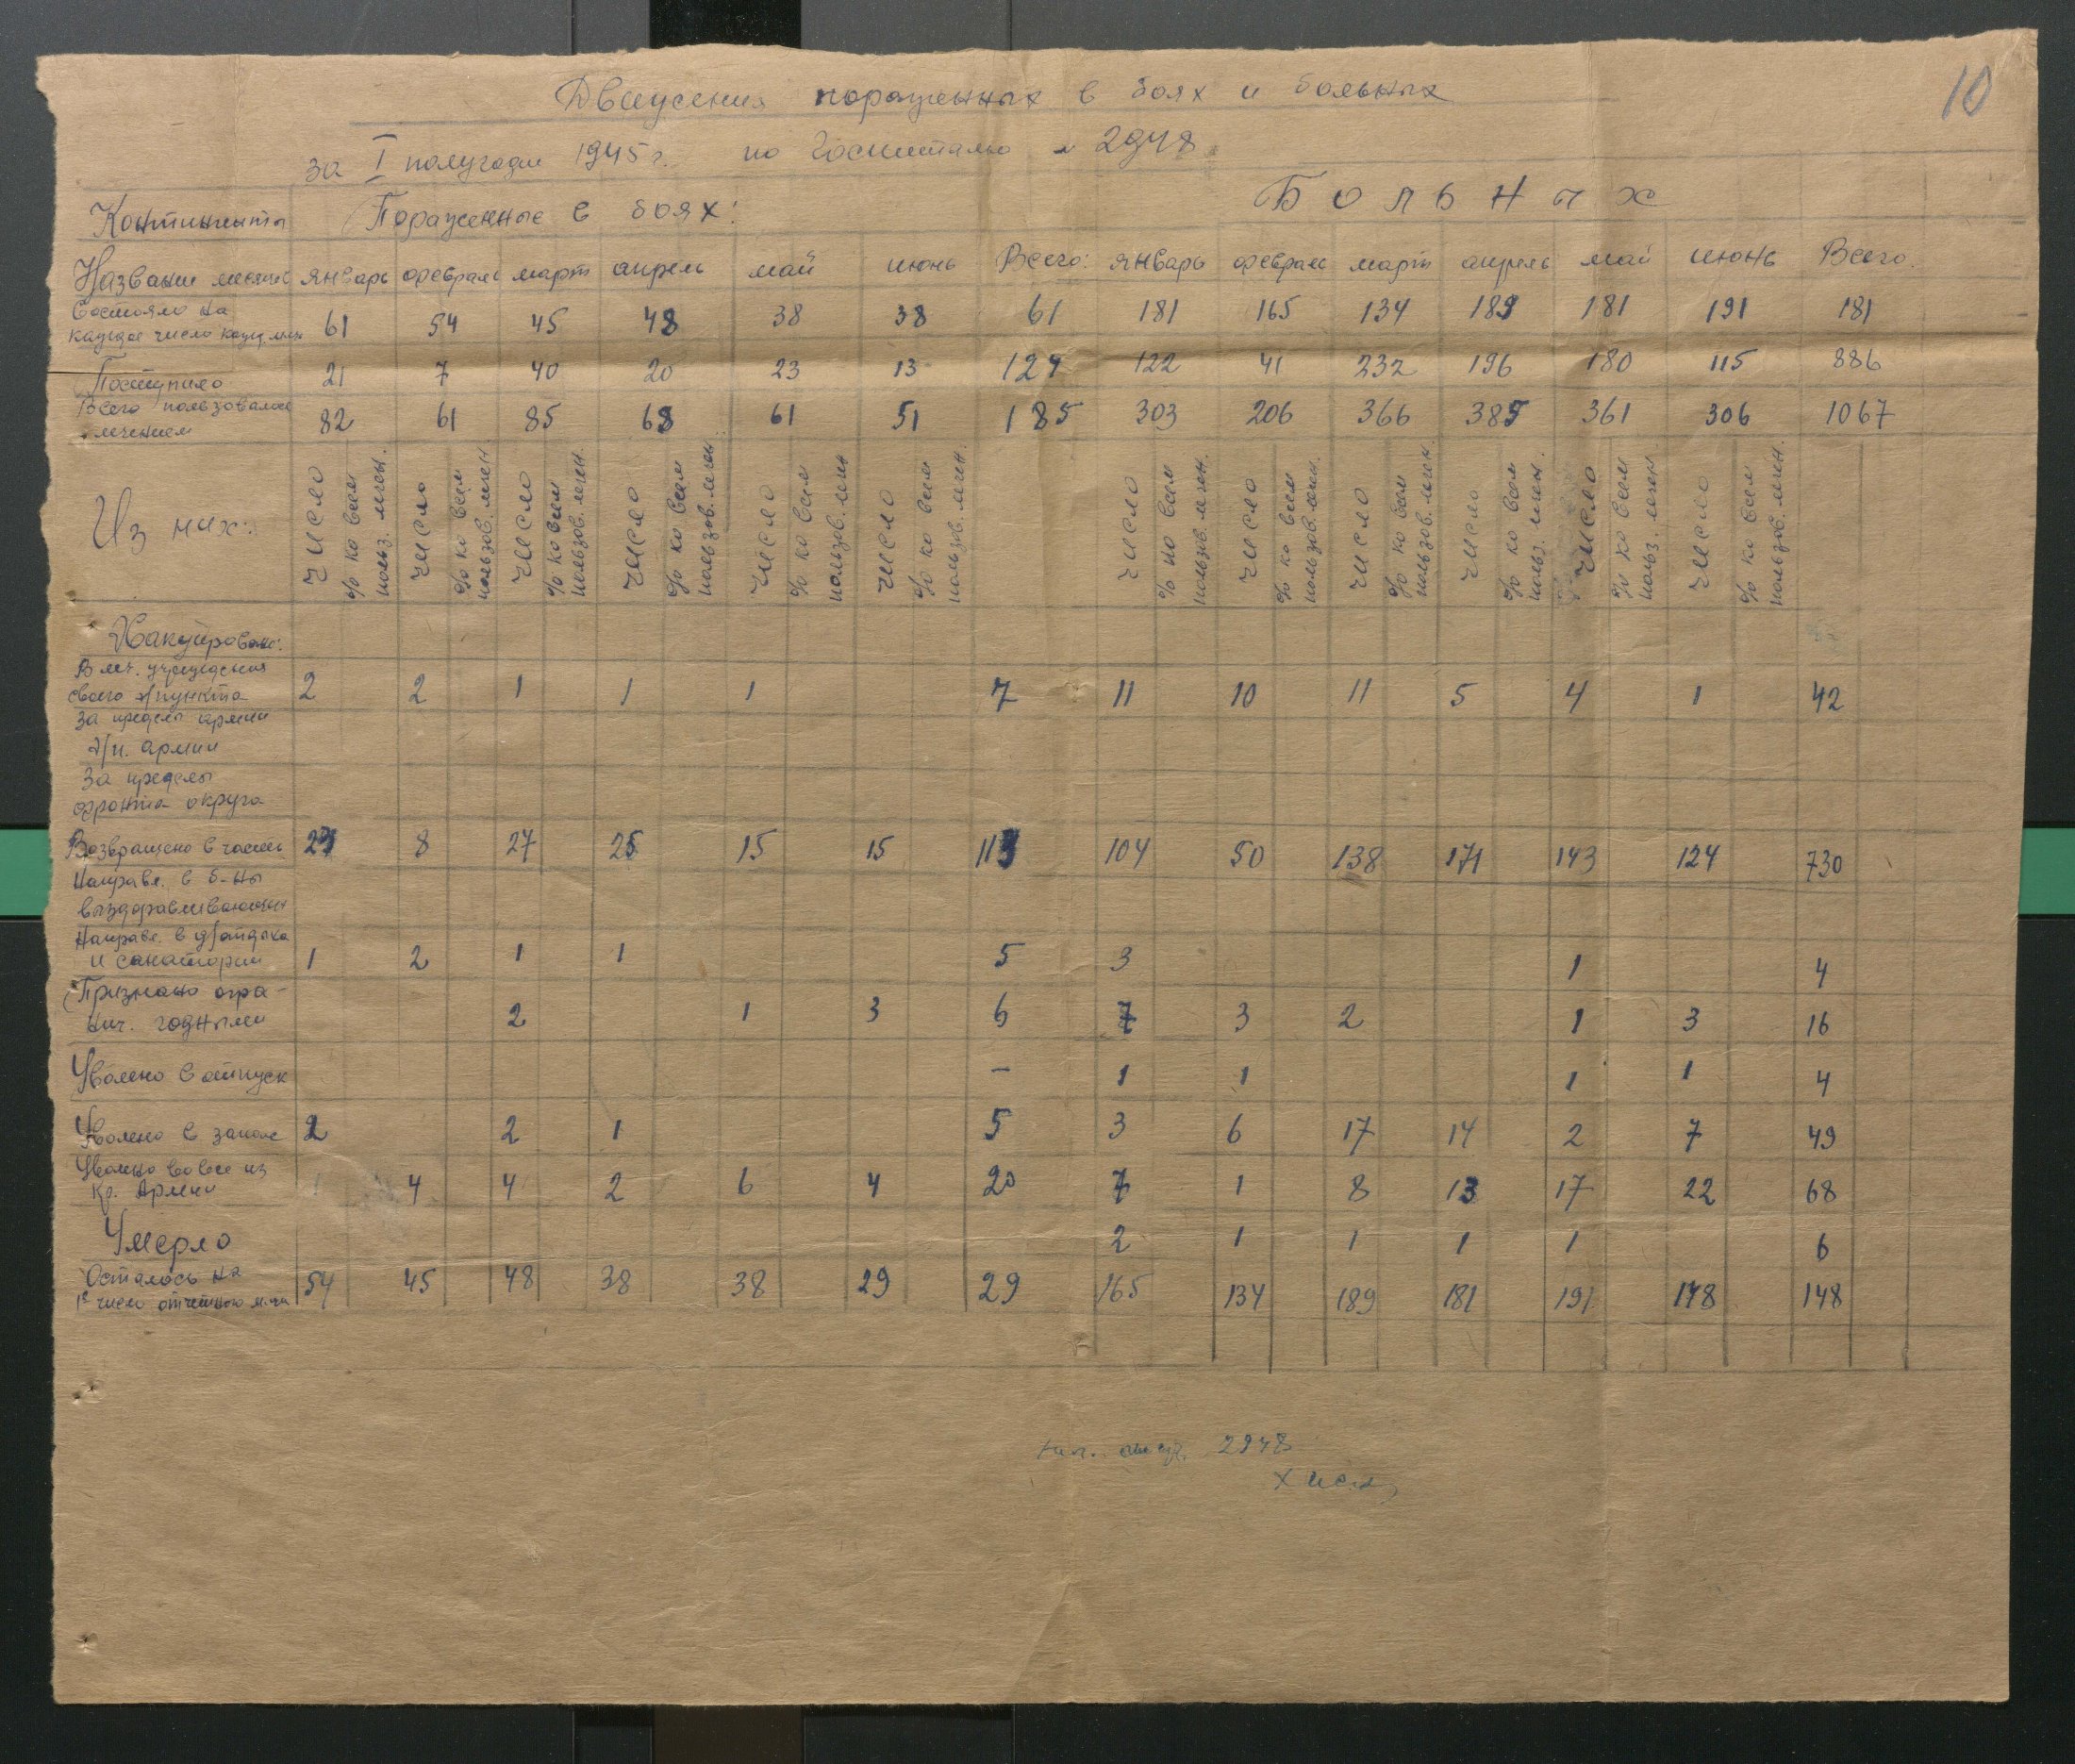 10
Движения пораженных в боях и больных
за I полугодие 1945 г. по Госпиталю № 2948
Контингенты Пораженные в боях: Больных
Название месяцев январь февраль март апрель май июнь Всего: январь февраль март апрель май июнь Всего.
Состояло на
каждое число кажд. м-ца 61 54 45 48 38 38 61 181 165 134 189 181 191 181
Поступило 21 7 40 20 23 13 124 122 41 232 196 180 115 886
Всего пользовалось
лечением 82 61 85 68 61 51 185 303 206 366 385 361 306 1067
Из них: число % ко всем польз. лечен. число % ко всем пользов. лечен число % ко всем пользов. лечен. число % ко всем пользов. лечен. число % ко всем пользов. лечен число % ко всем пользов. лечен. число % ко всем пользов. лечен. число % ко всем пользов. лечен. число % ко всем пользов. лечен. число % ко всем польз. лечен. число % ко всем польз. лечен число % ко всем пользов. лечен.
Эвакуировано:
В леч. учреждения
своего э/пункта 2 2 1 1 1 7 11 10 11 5 4 1 42
За пределы армии
э/п. армии
За пределы
фронта округа
Возвращено в части 23 8 27 25 15 15 113 104 50 138 171 143 124 730
Направл. в б-ны
выздоравливающих
Направл. в д/отдыха
и санатории 1 2 1 1 5 3 1 4
Признано огра-
нич. годными 2 1 3 6 7 3 2 1 3 16
Уволено в отпуск - 1 1 1 1 4
Уволено в запас 2 2 1 5 3 6 17 14 2 7 49
Уволено вовсе из
Кр. Армии 4 4 2 6 4 20 7 1 8 13 17 22 68
Умерло 2 1 1 1 1 6
Осталось на
1е число отчетного м-ца 54 45 48 38 38 29 29 165 134 189 181 191 148 148
2948